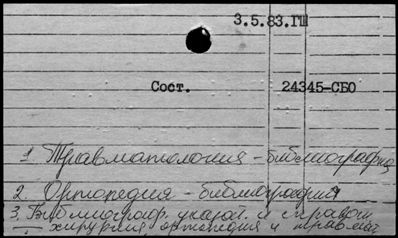 3.5.83.ГШ
Сост. 24345-СБО
1. Травматология - библиография
2. Ортопедия - библиография
3. Библиограф. указат. и справоч
- хирургия ортопедия и травмат